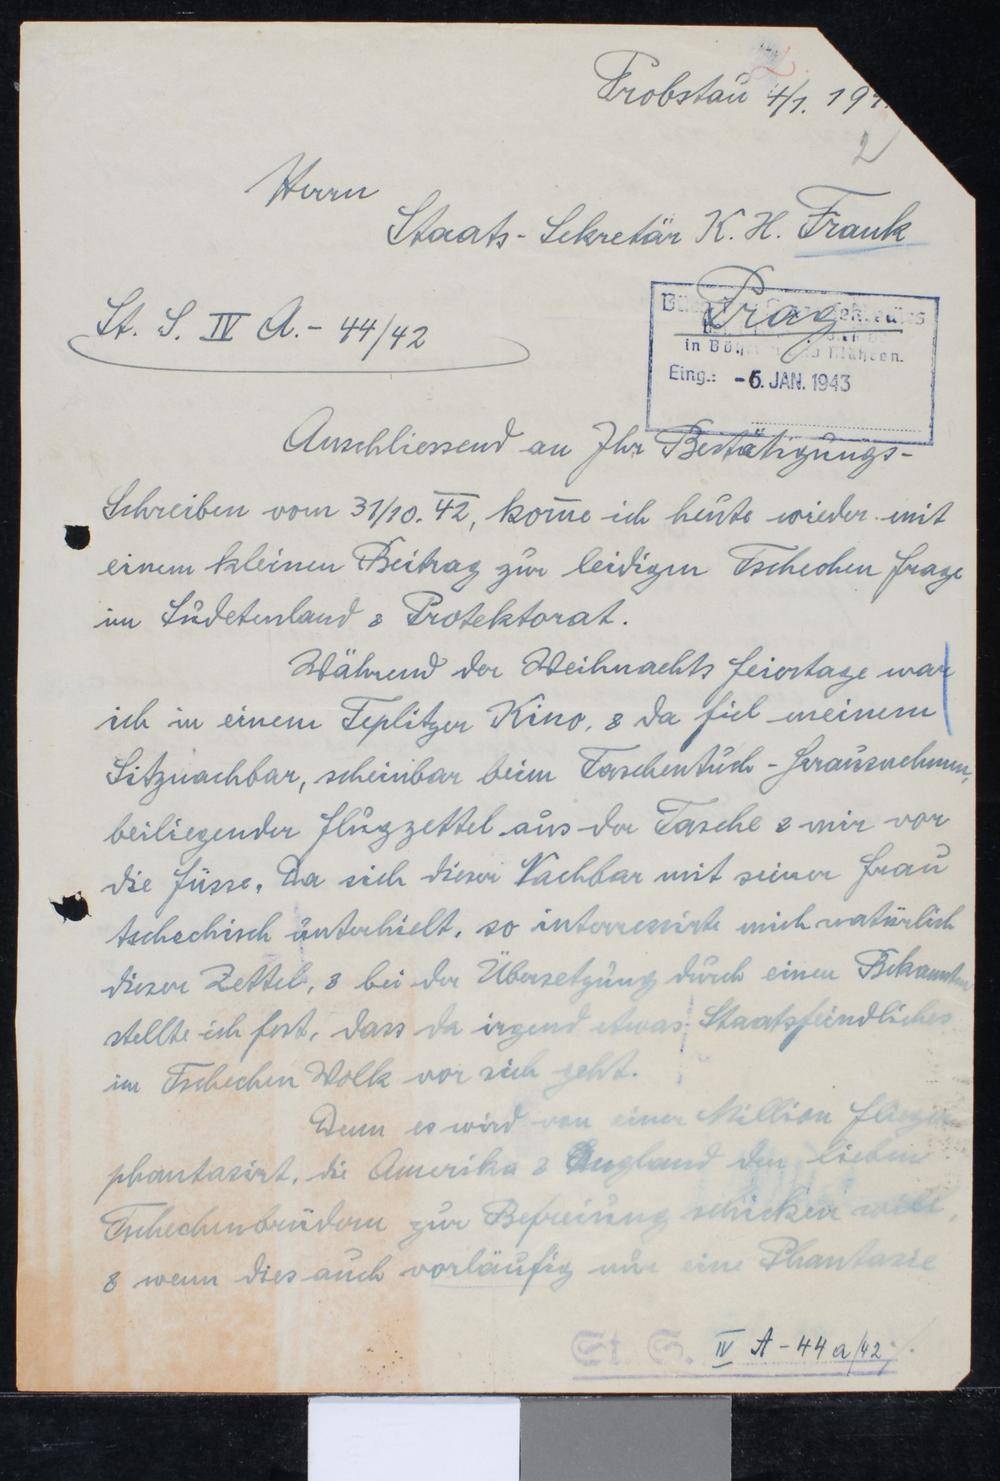 Probstau 4/1. 194
2
Herrn
Staats-Sekretär K. H. Frank
Prag
St. S. IV A.- 44/42
in Böhmen und Mähren.
Eing.: -6. JAN. 1943
Anschliessend an Ihr Bestätigungs-
Schreiben vom 31/10. 42, kom̅e ich heute wieder mit
einem kleinen Beitrag zur leidigen Tschechen frage
im Sudetenland & Protektorat.
Während der Weihnachts feiertage war
ich in einem Teplitzer Kino, & da fiel meinem
Sitznachbar, scheinbar beim Taschentuch-Herausnehmen,
beiliegender Flugzettel aus der Tasche & mir vor
die Füsse. Da sich dieser Nachbar mit seiner Frau
tschechisch unterhielt, so interressirte mich natürlich
dieser Zettel, & bei der Übersetzung durch einen Bekannten
stellte ich fest, dass da irgend etwas Staatsfeindliches
im Tschechen Volk vor sich geht.
Denn es wird von einer Million Flieger
phantasirt, die Amerika & England den lieben
Tschechenbrüdern zur Befreiung schicken will,
& wenn dies auch vorläufig nur eine Phantasie
St. S. IV A - 44 a/42